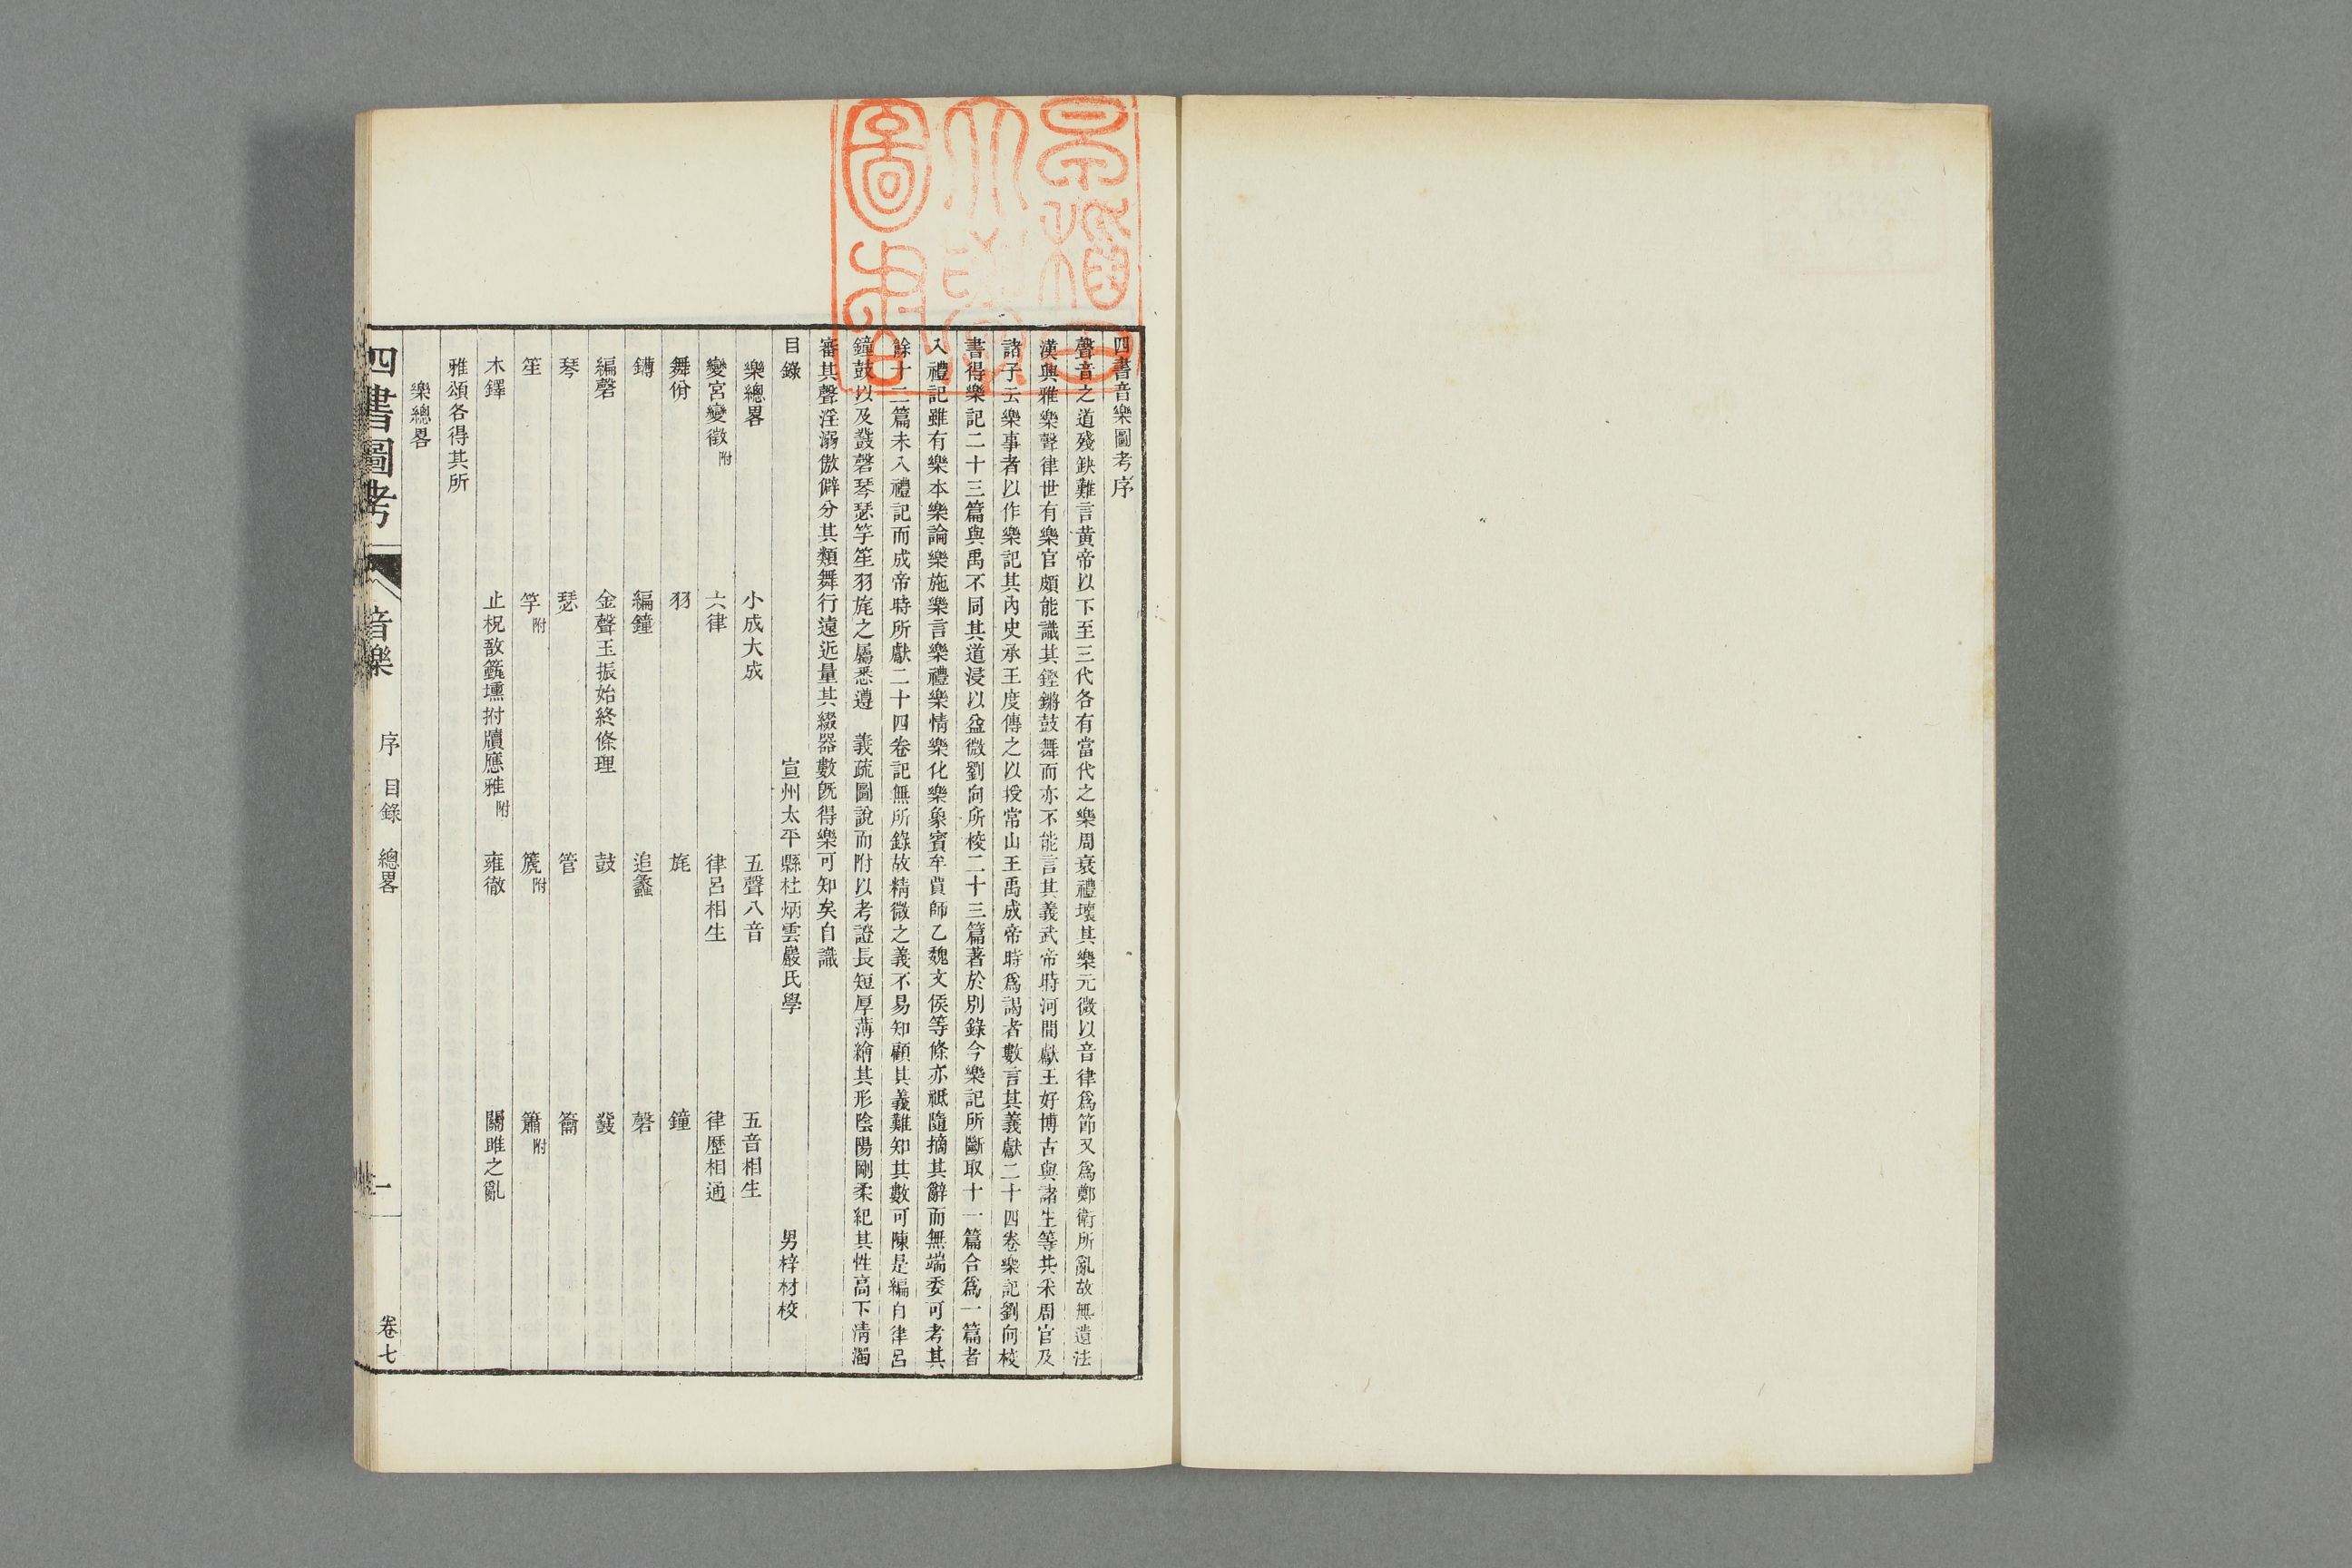 四書音樂圖考序
聲音之道殘缺難言黃帝以下至三代各有當代之樂周衰禮壞其樂元微以音律爲節又爲鄭衛所亂故無遺法
漢興雅樂聲律世有樂官頗能識其鏗鏘鼓舞而亦不能言其義武帝時河閒獻王好博古與諸生等共采周官及
諸子云樂事者以作樂記其內史丞王度傳之以授常山王禹成帝時爲謁者數言其義獻二十四卷樂記劉向校
書得樂記二十三篇與禹不同其道浸以益微劉向所校二十三篇著於別錄今樂記所斷取十一篇合爲一篇者
入禮記雖有樂本樂論樂施樂言樂禮樂情樂化樂象賓牟賈師乙魏文侯等條亦祗隨摘其辭而無端委可考其
餘十二篇未入禮記而成帝時所獻二十四卷記無所錄故精微之義不易知顧其義難知其數可陳是編自律呂
鐘鼓以及鼗磬琴瑟竽笙羽旄之屬悉遵　義疏圖說而附以考證長短厚薄繪其形陰陽剛柔紀其性高下清濁
審其聲淫溺傲僻分其類舞行遠近量其綴器數旣得樂可知矣自識
目錄　宣州太平縣杜炳雲巖氏學　男梓材校
樂總畧　小成大成　五聲八音　五音相生
變宮變徵附　六律　律呂相生　律歷相通
舞佾　羽　旄　鐘
鎛　編鐘　追蠡　磬
編磬　金聲玉振始終條理　鼓　鼗
琴　瑟　管　籥
笙　竽附　篪附　簫附
木鐸　止柷敔箎壎拊牘應雅附　雍徹　關雎之亂
雅頌各得其所
樂總畧
四書圖考　音樂　序　目錄　總畧　一　卷七